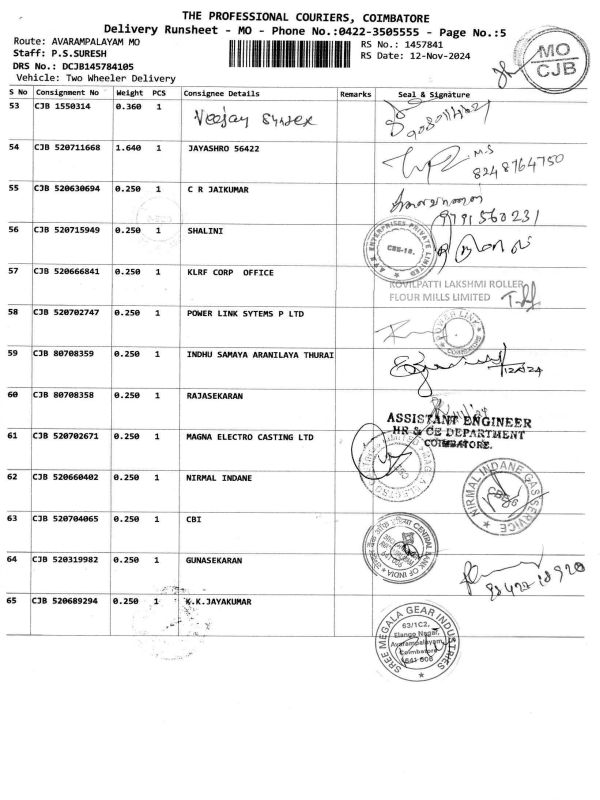 THE PROFESSIONAL COURIERS, COIMBATORE
Delivery Runsheet - MO - Phone No.:0422-3505555 - Page No.:5
Route: AVARAMPALAYAM MO
RS No.: 1457841
Staff: P.S.SURESH
RS Date: 12-Nov-2024
DRS No.: DCJB145784105
Vehicle: Two Wheeler Delivery
MO
CJB
S No Consignment No Weight PCS Consignee Details Remarks Seal & Signature
53 CJB 1550314 0.360 1
54 CJB 520711668 1.640 1 JAYASHRO 56422 M.S
8248764750
55 CJB 520630694 0.250 1 C R JAIKUMAR
9791560231
56 CJB 520715949 0.250 1 SHALINI
ENTERPRISES PRIVATE LIMITED
57 CJB 520666841 0.250 1 KLRF CORP OFFICE
KOVILPATTI LAKSHMI ROLLER
FLOUR MILLS LIMITED
58 CJB 520702747 0.250 1 POWER LINK SYTEMS P LTD
POWER LINK
59 CJB 80708359 0.250 1 INDHU SAMAYA ARANILAYA THURAI
60 CJB 80708358 0.250 1 RAJASEKARAN
ASSISTANT ENGINEER
HR & CE DEPARTMENT
COIMBATORE.
61 CJB 520702671 0.250 1 MAGNA ELECTRO CASTING LTD
62 CJB 520660402 0.250 1 NIRMAL INDANE
NIRMAL INDANE GAS SERVICE
63 CJB 520704065 0.250 1 CBI
CENTRAL BANK OF INDIA
64 CJB 520319982 0.250 1 GUNASEKARAN
65 CJB 520689294 0.250 1 K.K.JAYAKUMAR
SREE MEGALA GEAR INDUSTRIES
63/1C2,
Elango Nagar,
Avarampalayam,
Coimbatore
641 006